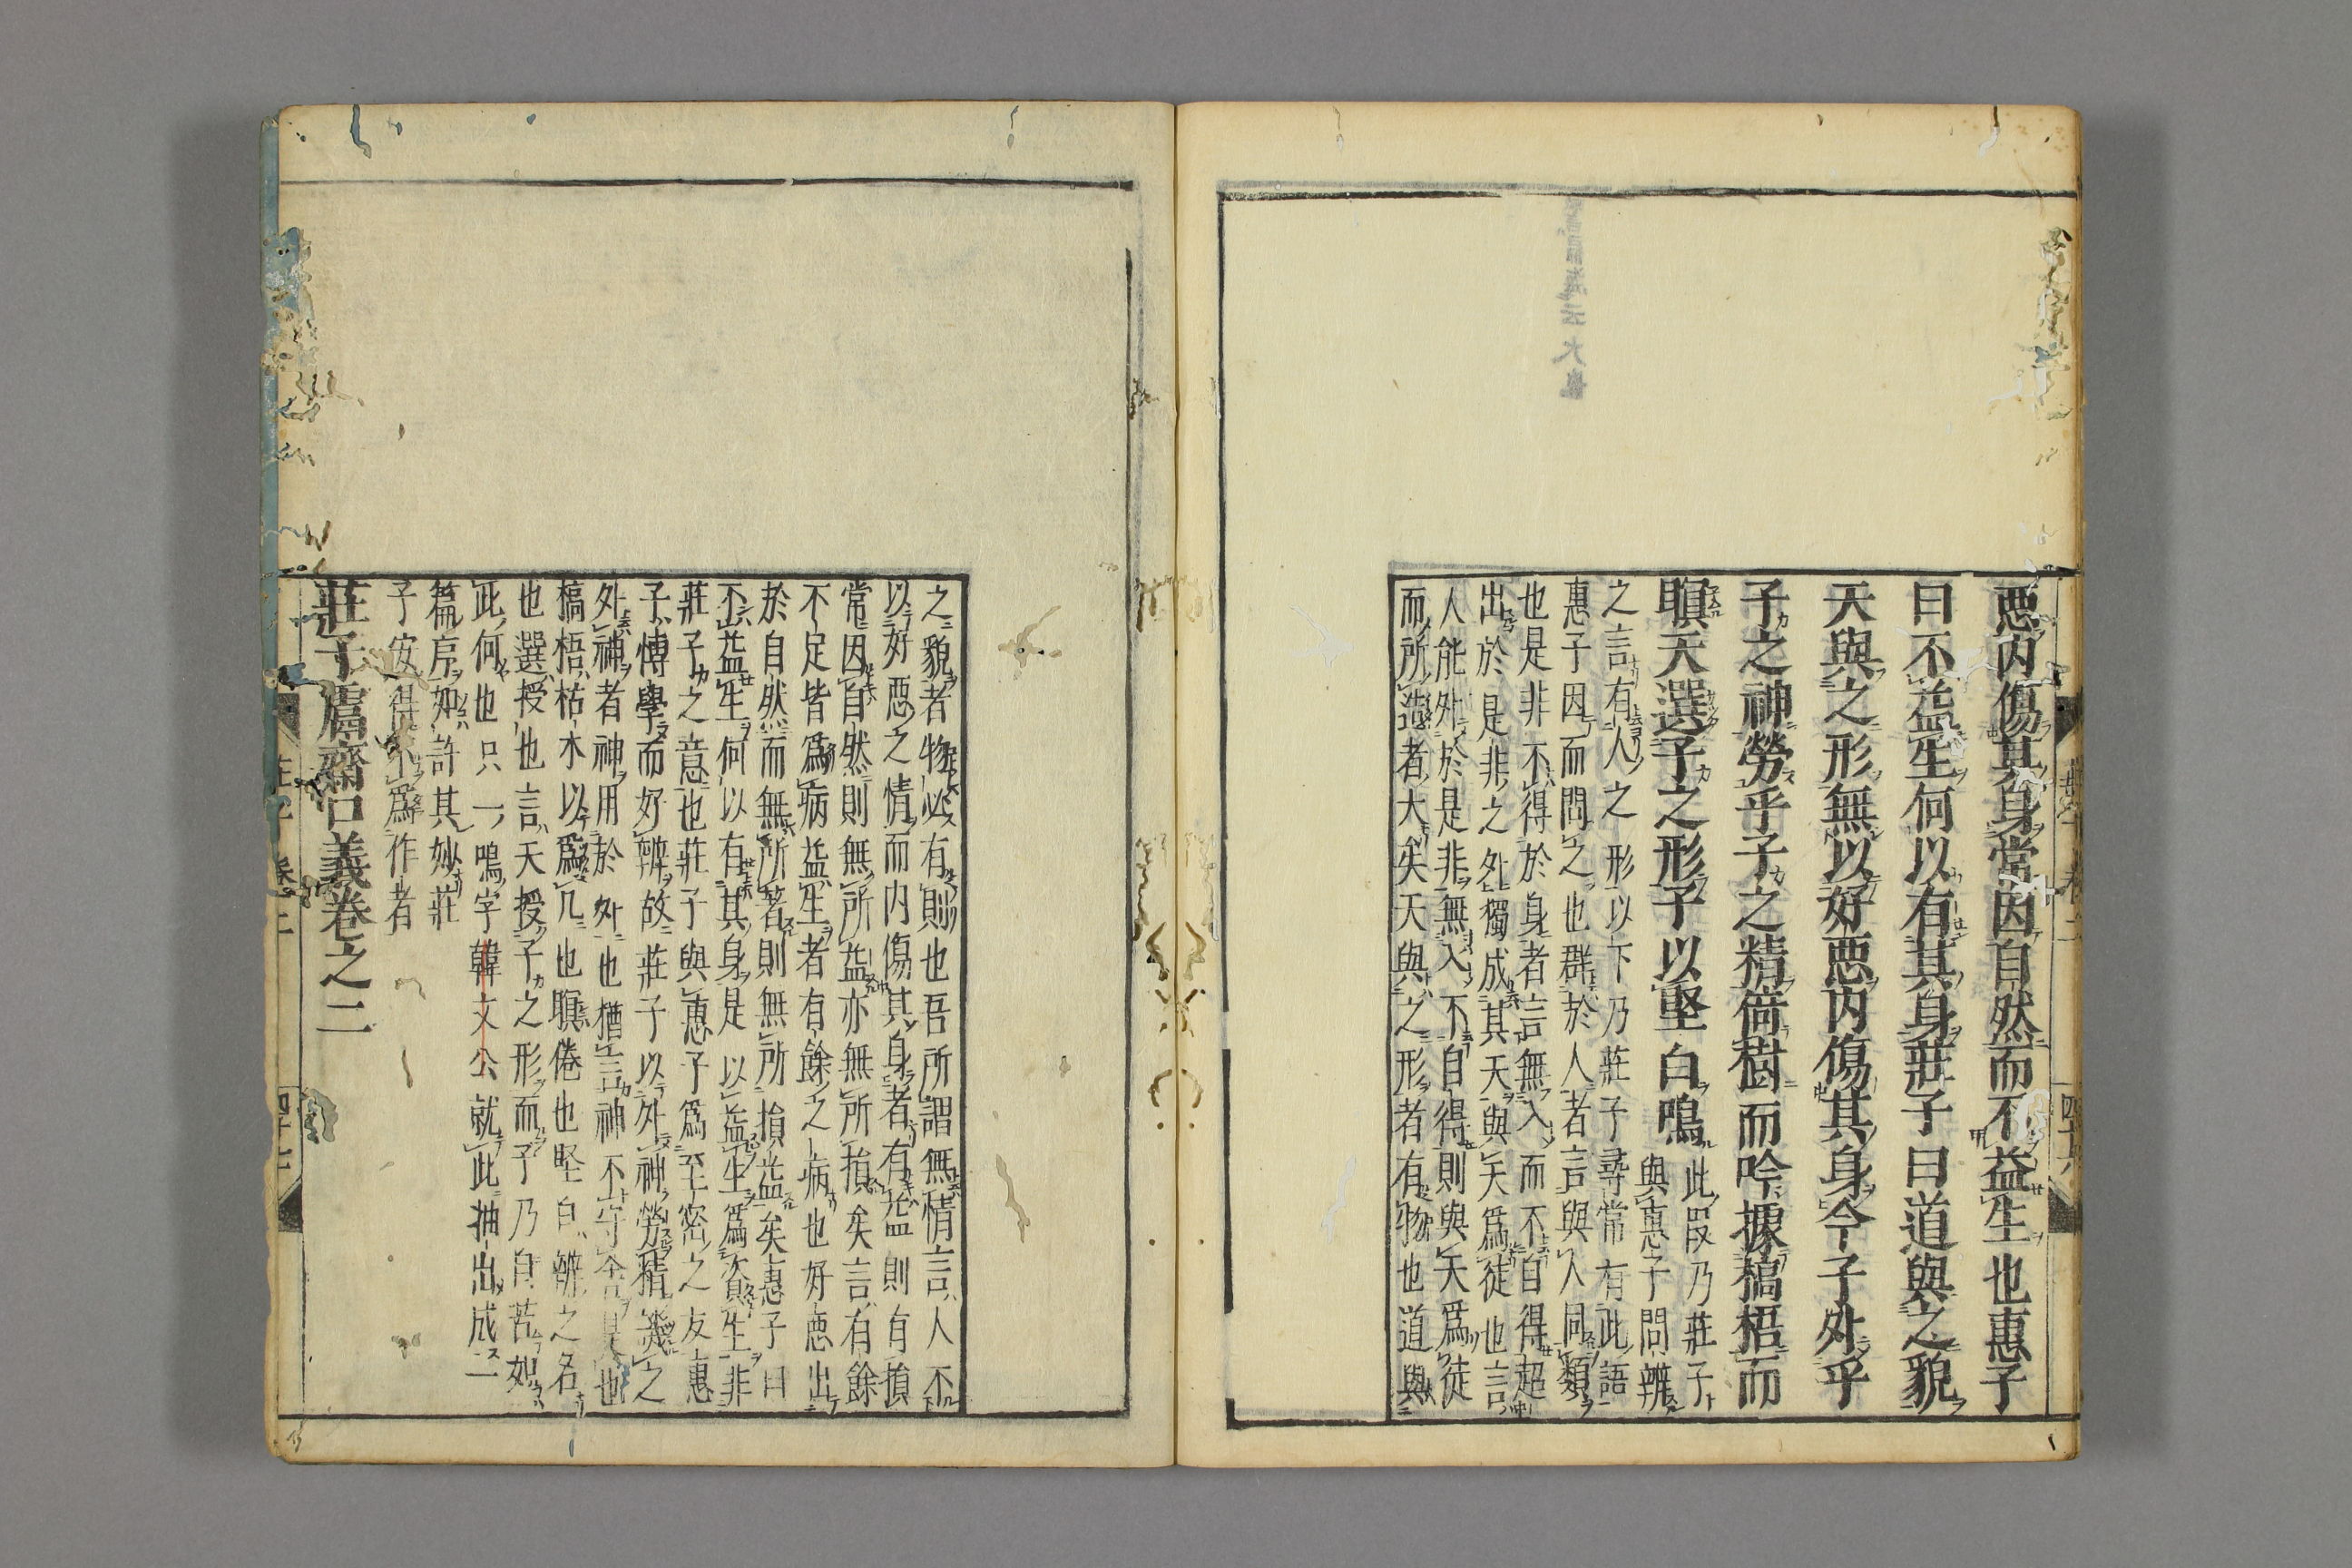 惡内傷其身常因自然而不益生也惠子
曰不益生何以有其身莊子曰道與之貌
天與之形無以好惡内傷其身今子外乎
子之神勞乎子之精倚樹而吟據槁梧而
瞑天選子之形子以堅白鳴
此段乃莊子
與惠子問辨
之言有人之形以下乃莊子尋常有此語
惠子因而問之也群於人者言與人同類
也是非不得於身者言無入而不自得超
出於是非之外獨成其天與天爲徒也言
人能外於是非無入不自得則與天爲徒
而所造者大矣天與之形者有物也道與
之貌者物必有則也吾所謂無情言人不
以好惡之情而内傷其身者有益則有損
常因自然則無所益亦無所損矣言有餘
不足皆爲病益生者有餘之病也好惡出
於自然而無所著則無所損益矣惠子曰
不益生何以有其身是以益生爲資生非
莊子之意也莊子與惠子爲至密之友惠
子博學而好辨故莊子以外神勞精譏之
外神者神用於外也猶言神不守舍是也
槁梧枯木以爲几也瞑倦也堅白辨之名
也選授也言天授子之形而子乃自苦如
此何也只一鳴字韓文公就此抽出成一
篇序如許其妙莊
子安得不爲作者
莊子鬳齋口義卷之二